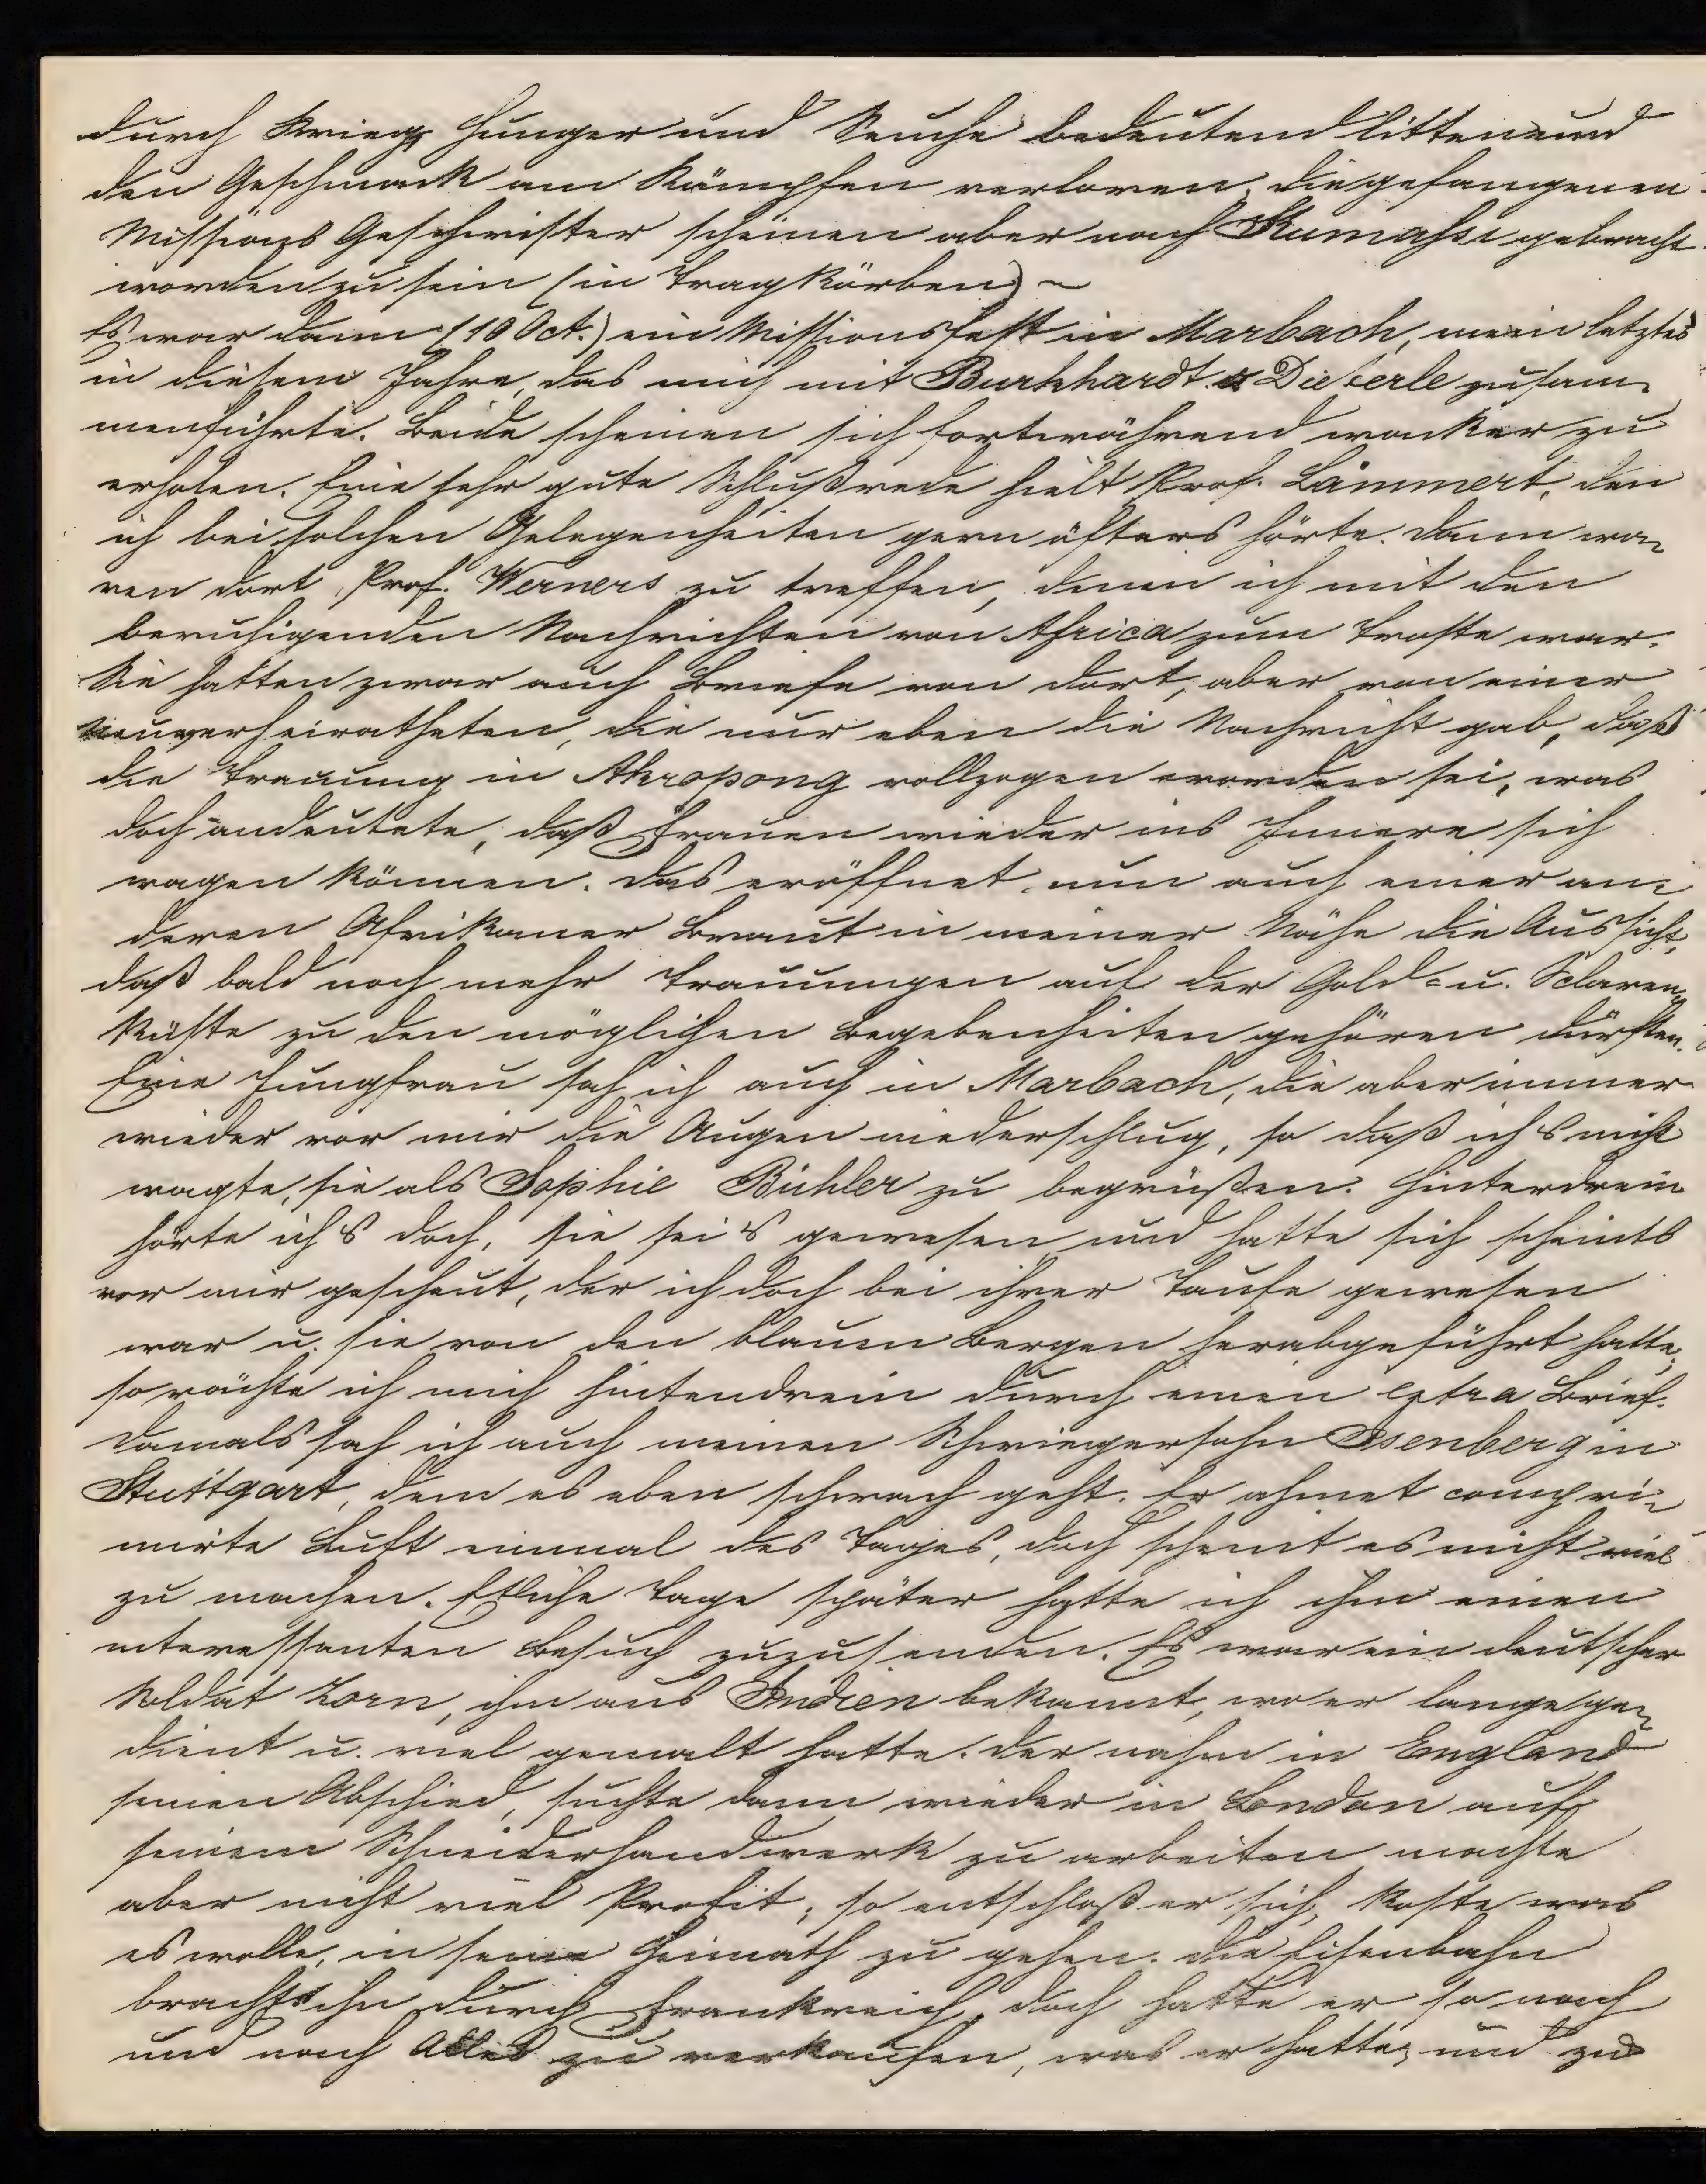 durch Krieg, Hunger und Seuche bedeutend litten und
den Geschmack am Kämpfen verloren. Die gefangenen
Missions Geschwister scheinen aber nach Kumasse gebracht
worden zu sein (in Tragkörben) ~
Es war dann (10 Oct.) ein Missionsfest in Marbach, mein letztes
in diesem Jahre, das mich mit Burkhardt & Dieterle zusam-
menführte. Beide scheinen sich fortwährend wacker zu
erholen. Eine sehr gute Schlußrede hielt Prof. Lämmert, den
ich bei solchen Gelegenheiten gern öfters hörte. Dann wa-
ren dort Prof. Werners zu treffen, denen ich mit den
beruhigenden Nachrichten von Africa zum Troste war.
Sie hatten zwar auch Briefe von dort, aber von einer
neuverheiratheten, die nur eben die Nachricht gab, daß
die Trauung in Akropong vollzogen worden sei, was
doch andeutete, daß Frauen wieder ins Innere sich
wagen können. Das eröffnet nun auch einer an-
deren Afrikaner Braut in meiner Nähe die Aussicht,
daß bald noch mehr Trauungen auf der Gold- u. Sclaven-
küste zu den möglichen Begebenheiten gehören dürften.
Eine Jungfrau sah ich auch in Marbach, die aber immer
wieder vor mir die Augen niederschlug, so daß ichs nicht
wagte, sie als Sophie Bühler zu begrüßen. Hinterdrein
hörte ichs doch, sie sei's gewesen und hatte sich scheints
vor mir gescheut, der ich doch bei ihrer Taufe gewesen
war u. sie von den blauen Bergen herabgeführt hatte,
so rächte ich mich hintendrein durch einen extra Brief.
Damals sah ich auch meinen Schwiegersohn Isenberg in
Stuttgart, dem es eben schwach geht. Er ahmet compri-
mirte Luft einmal des Tages, doch scheint es nicht viel
zu machen. Etliche Tage später hatte ich ihm einen
interessanten Besuch zuzusenden. Es war ein deutscher
Soldat Zorn, ihm aus Indien bekannt, wo er lange ge-
dient u. viel gemalt hatte. Der nahm in England
seinen Abschied, suchte dann wieder in London auf
seinem Schneiderhandwerk zu arbeiten machte
aber nicht viel Profit; so entschloß er sich, koste was
es wolle, in seine Heimath zu gehen. Die Eisenbahn
brachte ihn durch Frankreich, doch hatte er so nach
und nach Alles zu verkaufen, was er hatte, und zu